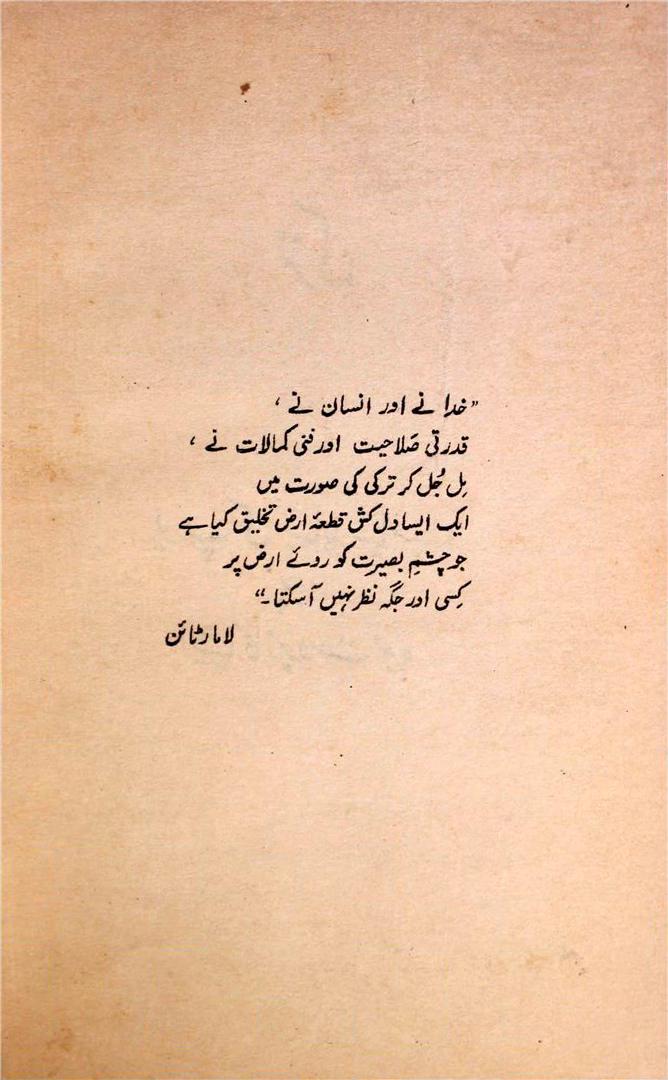 ”خدا نے اور انسان نے ،
قدرتی صَلاحیت اور فنی کمالات نے ،
مِل جُل کر ترکی کی صورت میں
ایک ایسا دل کش قطعۂ ارض تخلیق کیا ہے
جو چشمِ بصیرت کو روئے ارض پر
کِسی اور جگہ نظر نہیں آ سکتا۔“
لامارٹائن